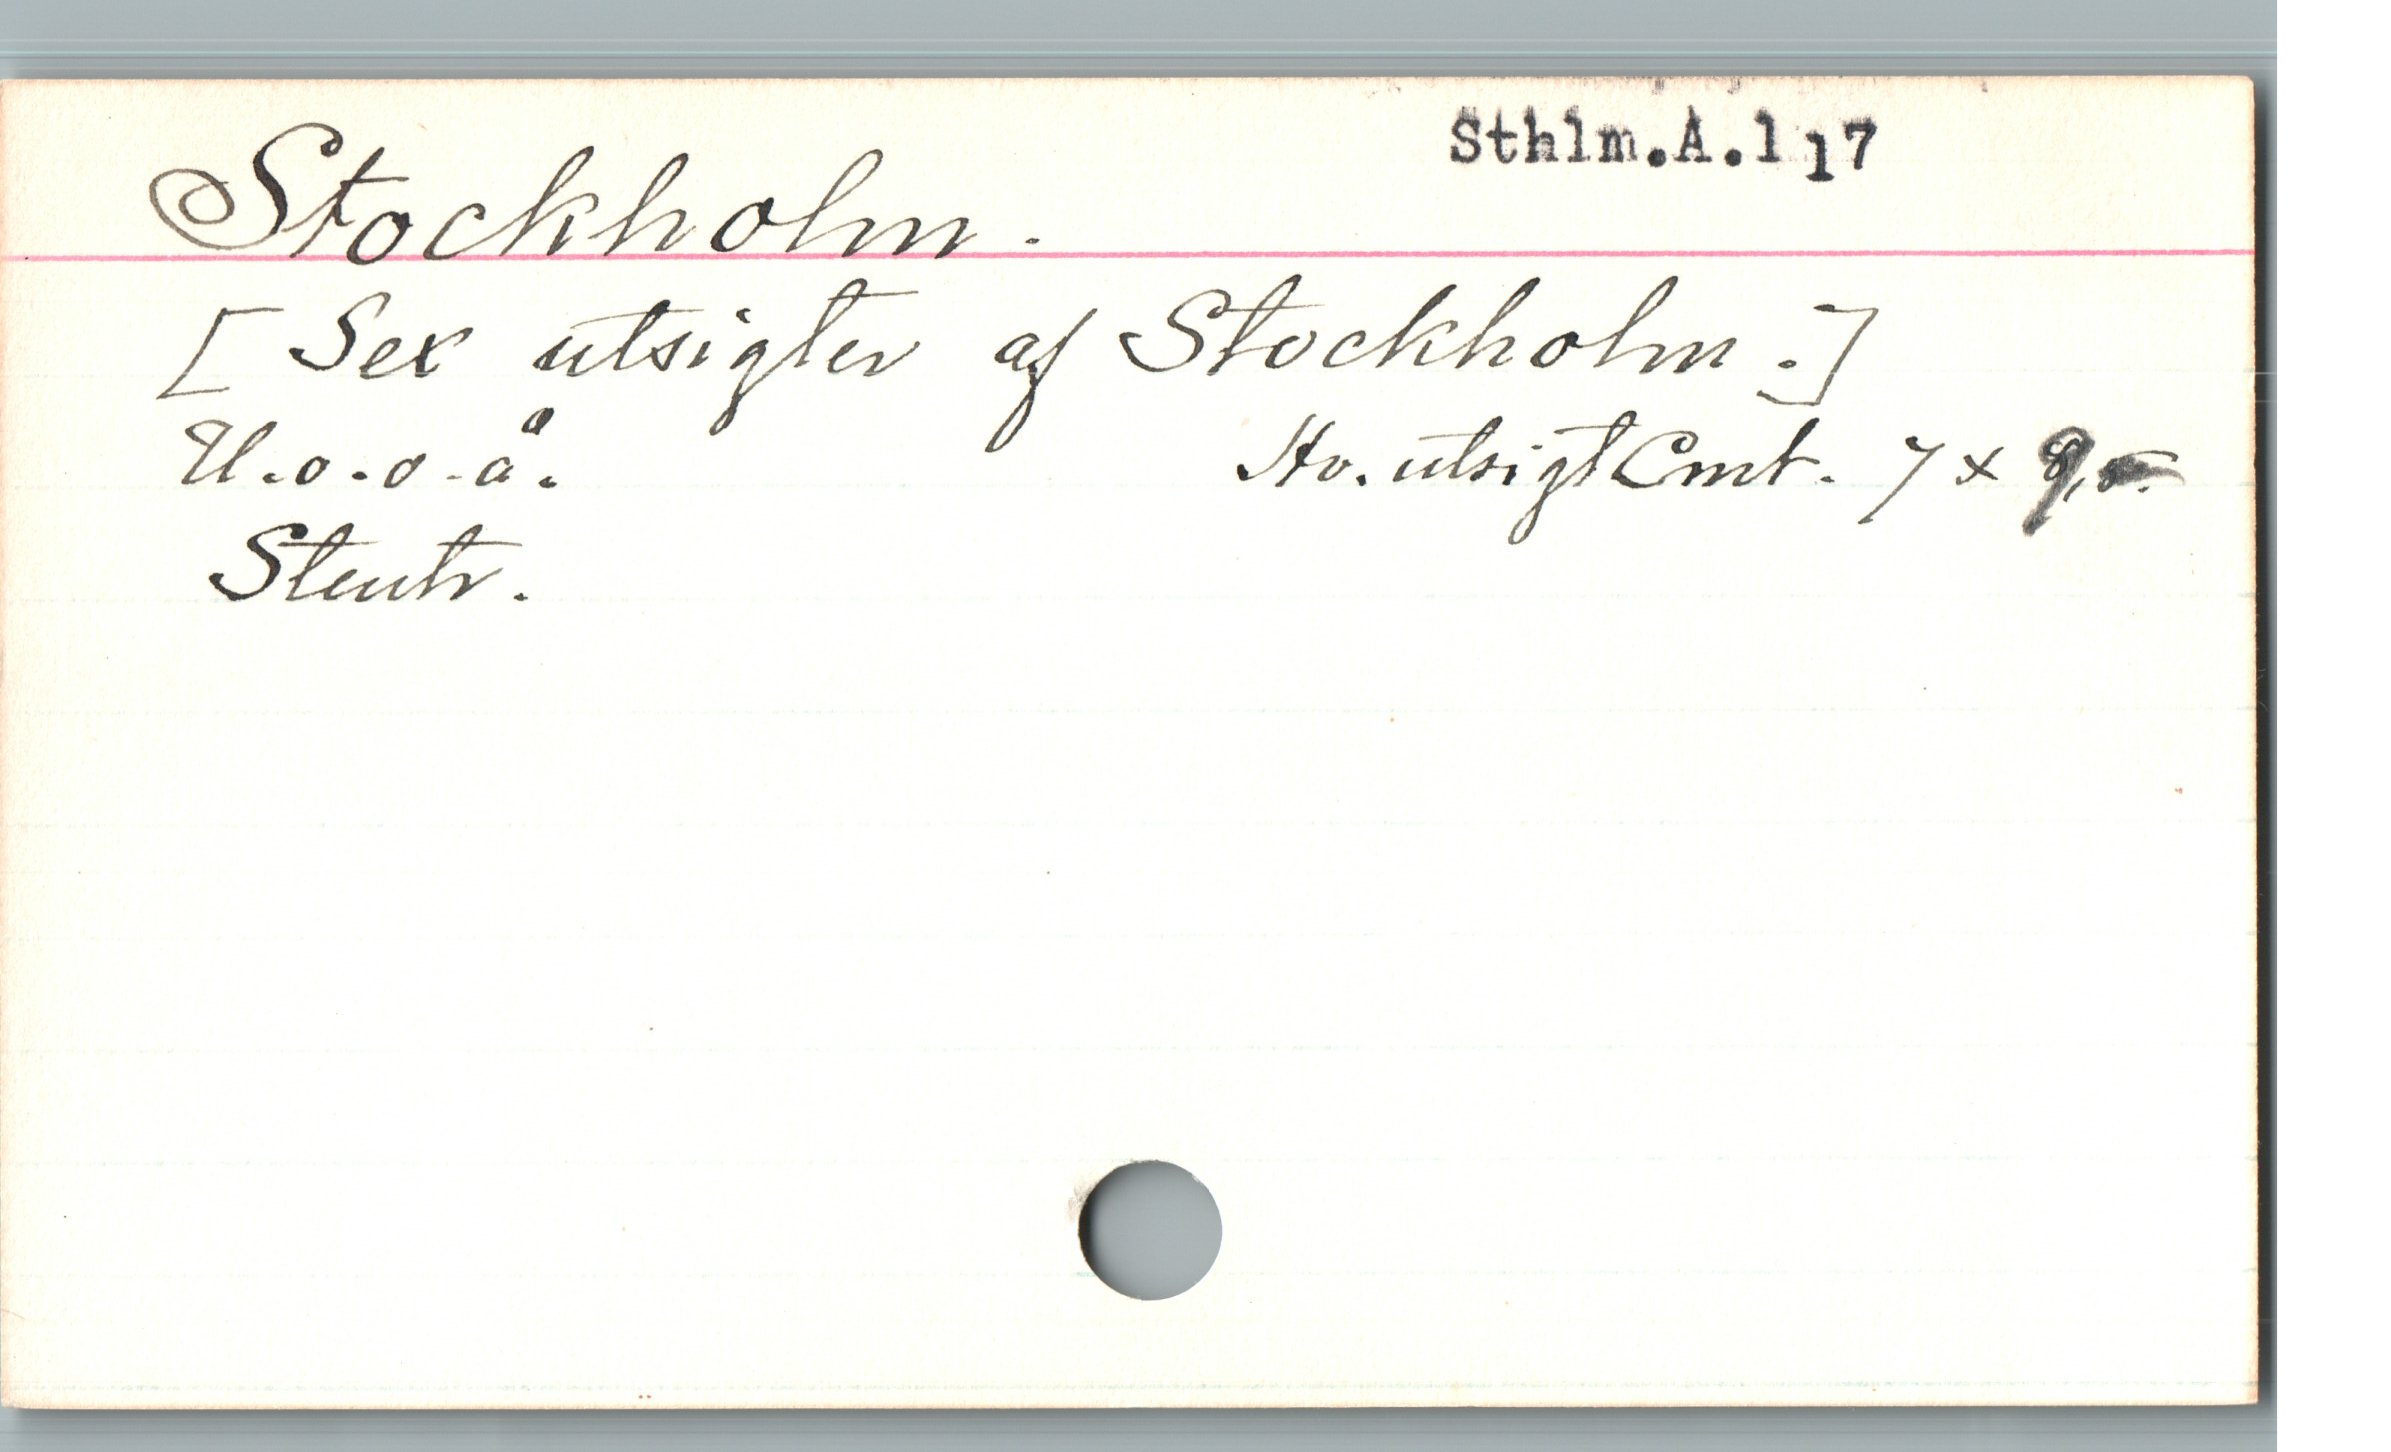 Sthlm.A.1 17
Stockholm.
[Sex utsigter af Stockholm.]
U.o.o.å. Hv. utsigt Cmt. 7 x
Stentr.